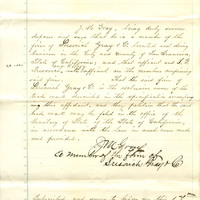 J. M. Gray, being duly sworn
deposes and says that he is a member of the
firm of Dresbach Gray & Co. located and doing
business in the City and County of San Francisco
State of California; and that affiant and
are the members composing
said firm. That the said firm of
Gray & Co. is the exclusive owner of the
trade mark described in the specification accompany-
ing this affidavit, and they petition that the said
trade mark may be filed in the office of the
Secretary of State of the State of California
in accordance with the law in such case made
and provided.
J M Gray
a member of the firm of
Gray & Co
Subscribed and sworn to before me this